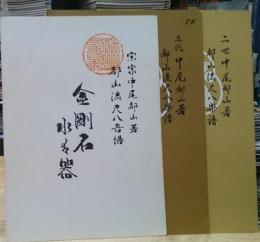 宗家中尾都山著
都山流尺八音譜
金剛石
水は器
三代中尾都山著
都山流尺八楽譜
二世中尾都山著
都山流尺八楽譜